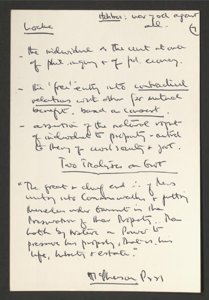 Hobbes: war of all against all.
Locke
- the individual as the unit at core of phil. inquiry & of pol. economy.
- the 'free' entry into contractual relations with other for mutual benefit, based on consent
- assertion of the natural right of individual to property - central to theory of civil society & govt.
Two Treatises on Govt
"The great & chief end of Mens
uniting into Commonwealths, & putting
themselves under Government is the
Preservation of their Property. Man
hath by Nature a Power to
preserve his property, that is, his
life, liberty & estate."